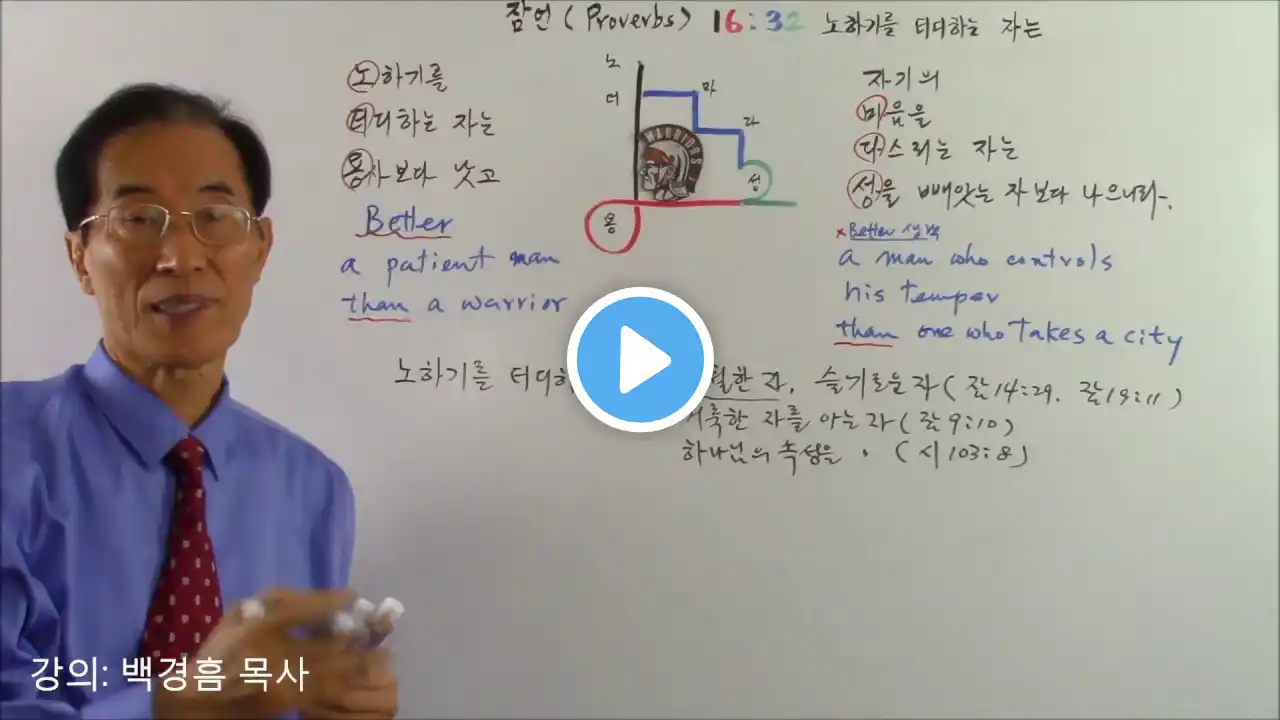 잠언 (Proverbs) 16:32 노하기를 더디하는 자는
노하기를
더디하는 자는
용사보다 낫고
Better
a patient man
than a warrior
노
더
마
다
WARRIORS
성
용
자기의
마음을
다스리는 자는
성을 빼앗는 자보다 나으니라.
x Better 생략
a man who controls
his temper
than one who takes a city
노하기를 더디하 한 자, 슬기로운 자 (잠 14:29. 잠 19:11)
거룩한 자를 아는 자 (잠 9:10)
하나님의 속성을 . (시 103:8)
강의: 백경흠 목사